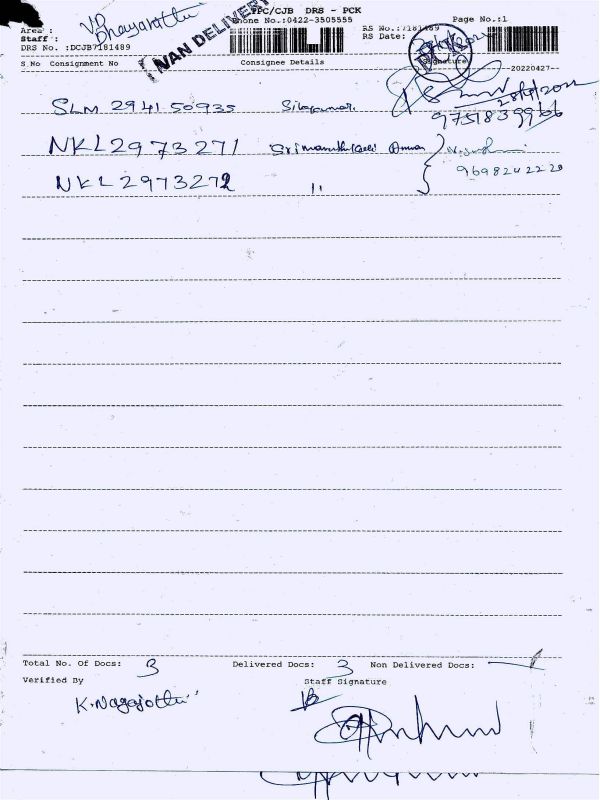 TPC/CJB DRS - PCK
Area :
Phone No.:0422-3505555
Page No.:1
Staff :
RS No.:7181489
DRS No. :DCJB7181489
RS Date:
VAN DELIVERY
S No Consignment No Consignee Details Signature
20220427
SLM 2941 50935 Sivakumar 28/4/2022
9751839966
NKL2973271
9698242220
NKL2973272 "
Total No. Of Docs: 3 Delivered Docs: 3 Non Delivered Docs: —
Verified By Staff Signature
K. Nagajothi